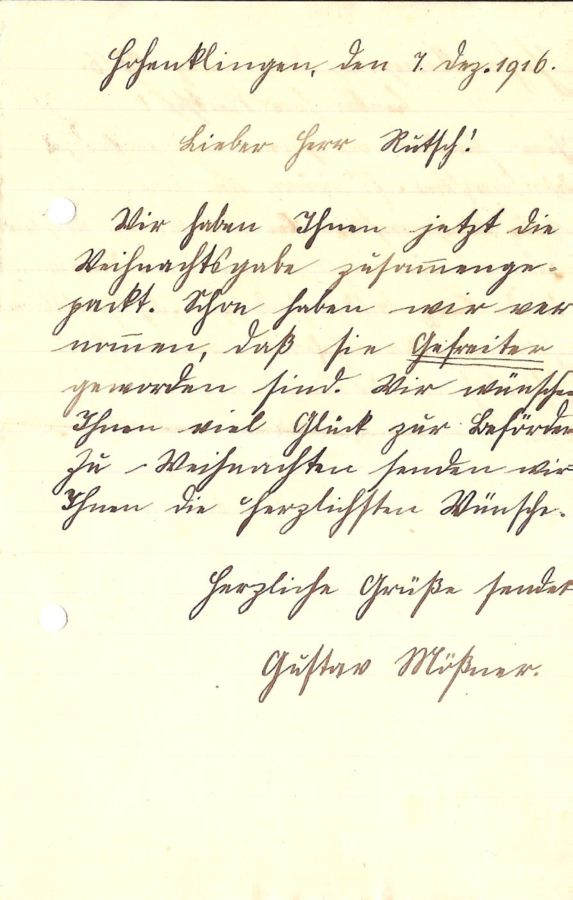 Hohenklingen, den 7. Dez. 1916.
Lieber Herr Rutsch!
Wir haben Ihnen jetzt die
Weihnachtsgabe zusammenge-
packt. Schon haben wir ver
nommen, daß sie Gefreiter
geworden sind. Wir wünsche
Ihnen viel Glück zur Beförder
Zu Weihnachten senden wir
Ihnen die herzlichsten Wünsche.
Herzliche Grüße sendet
Gustav Mößner.